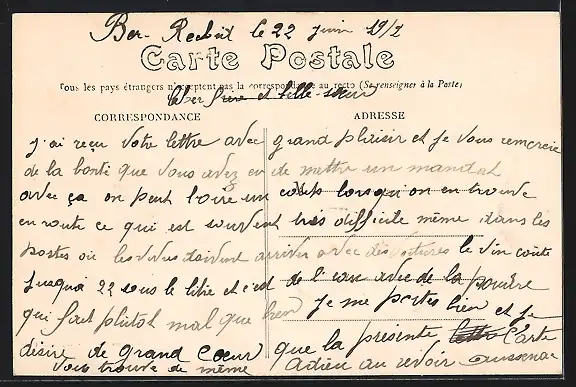 Ber-Rechit le 22 juin 1917
Carte Postale
Tous les pays étrangers n'acceptent pas la correspondance au recto (Se renseigner à la Poste)
Cher frère et belle-sœur
CORRESPONDANCE ADRESSE
j'ai reçu votre lettre avec grand plaisir et je vous remercie
de la bonté que vous avez eu de mettre un mandat
avec ça on peut boire un coup lorsqu'on en trouve
en route ce qui est souvent très difficile même dans les
postes où les vivres doivent arriver avec des voitures le vin coûte
jusqu'à 22 sous le litre et c'est de l'eau avec de la poudre
qui fait plutôt mal que bien je me portes bien et je
désire de grand cœur que la présente lettre Carte
vous trouve de même Adieu au revoir